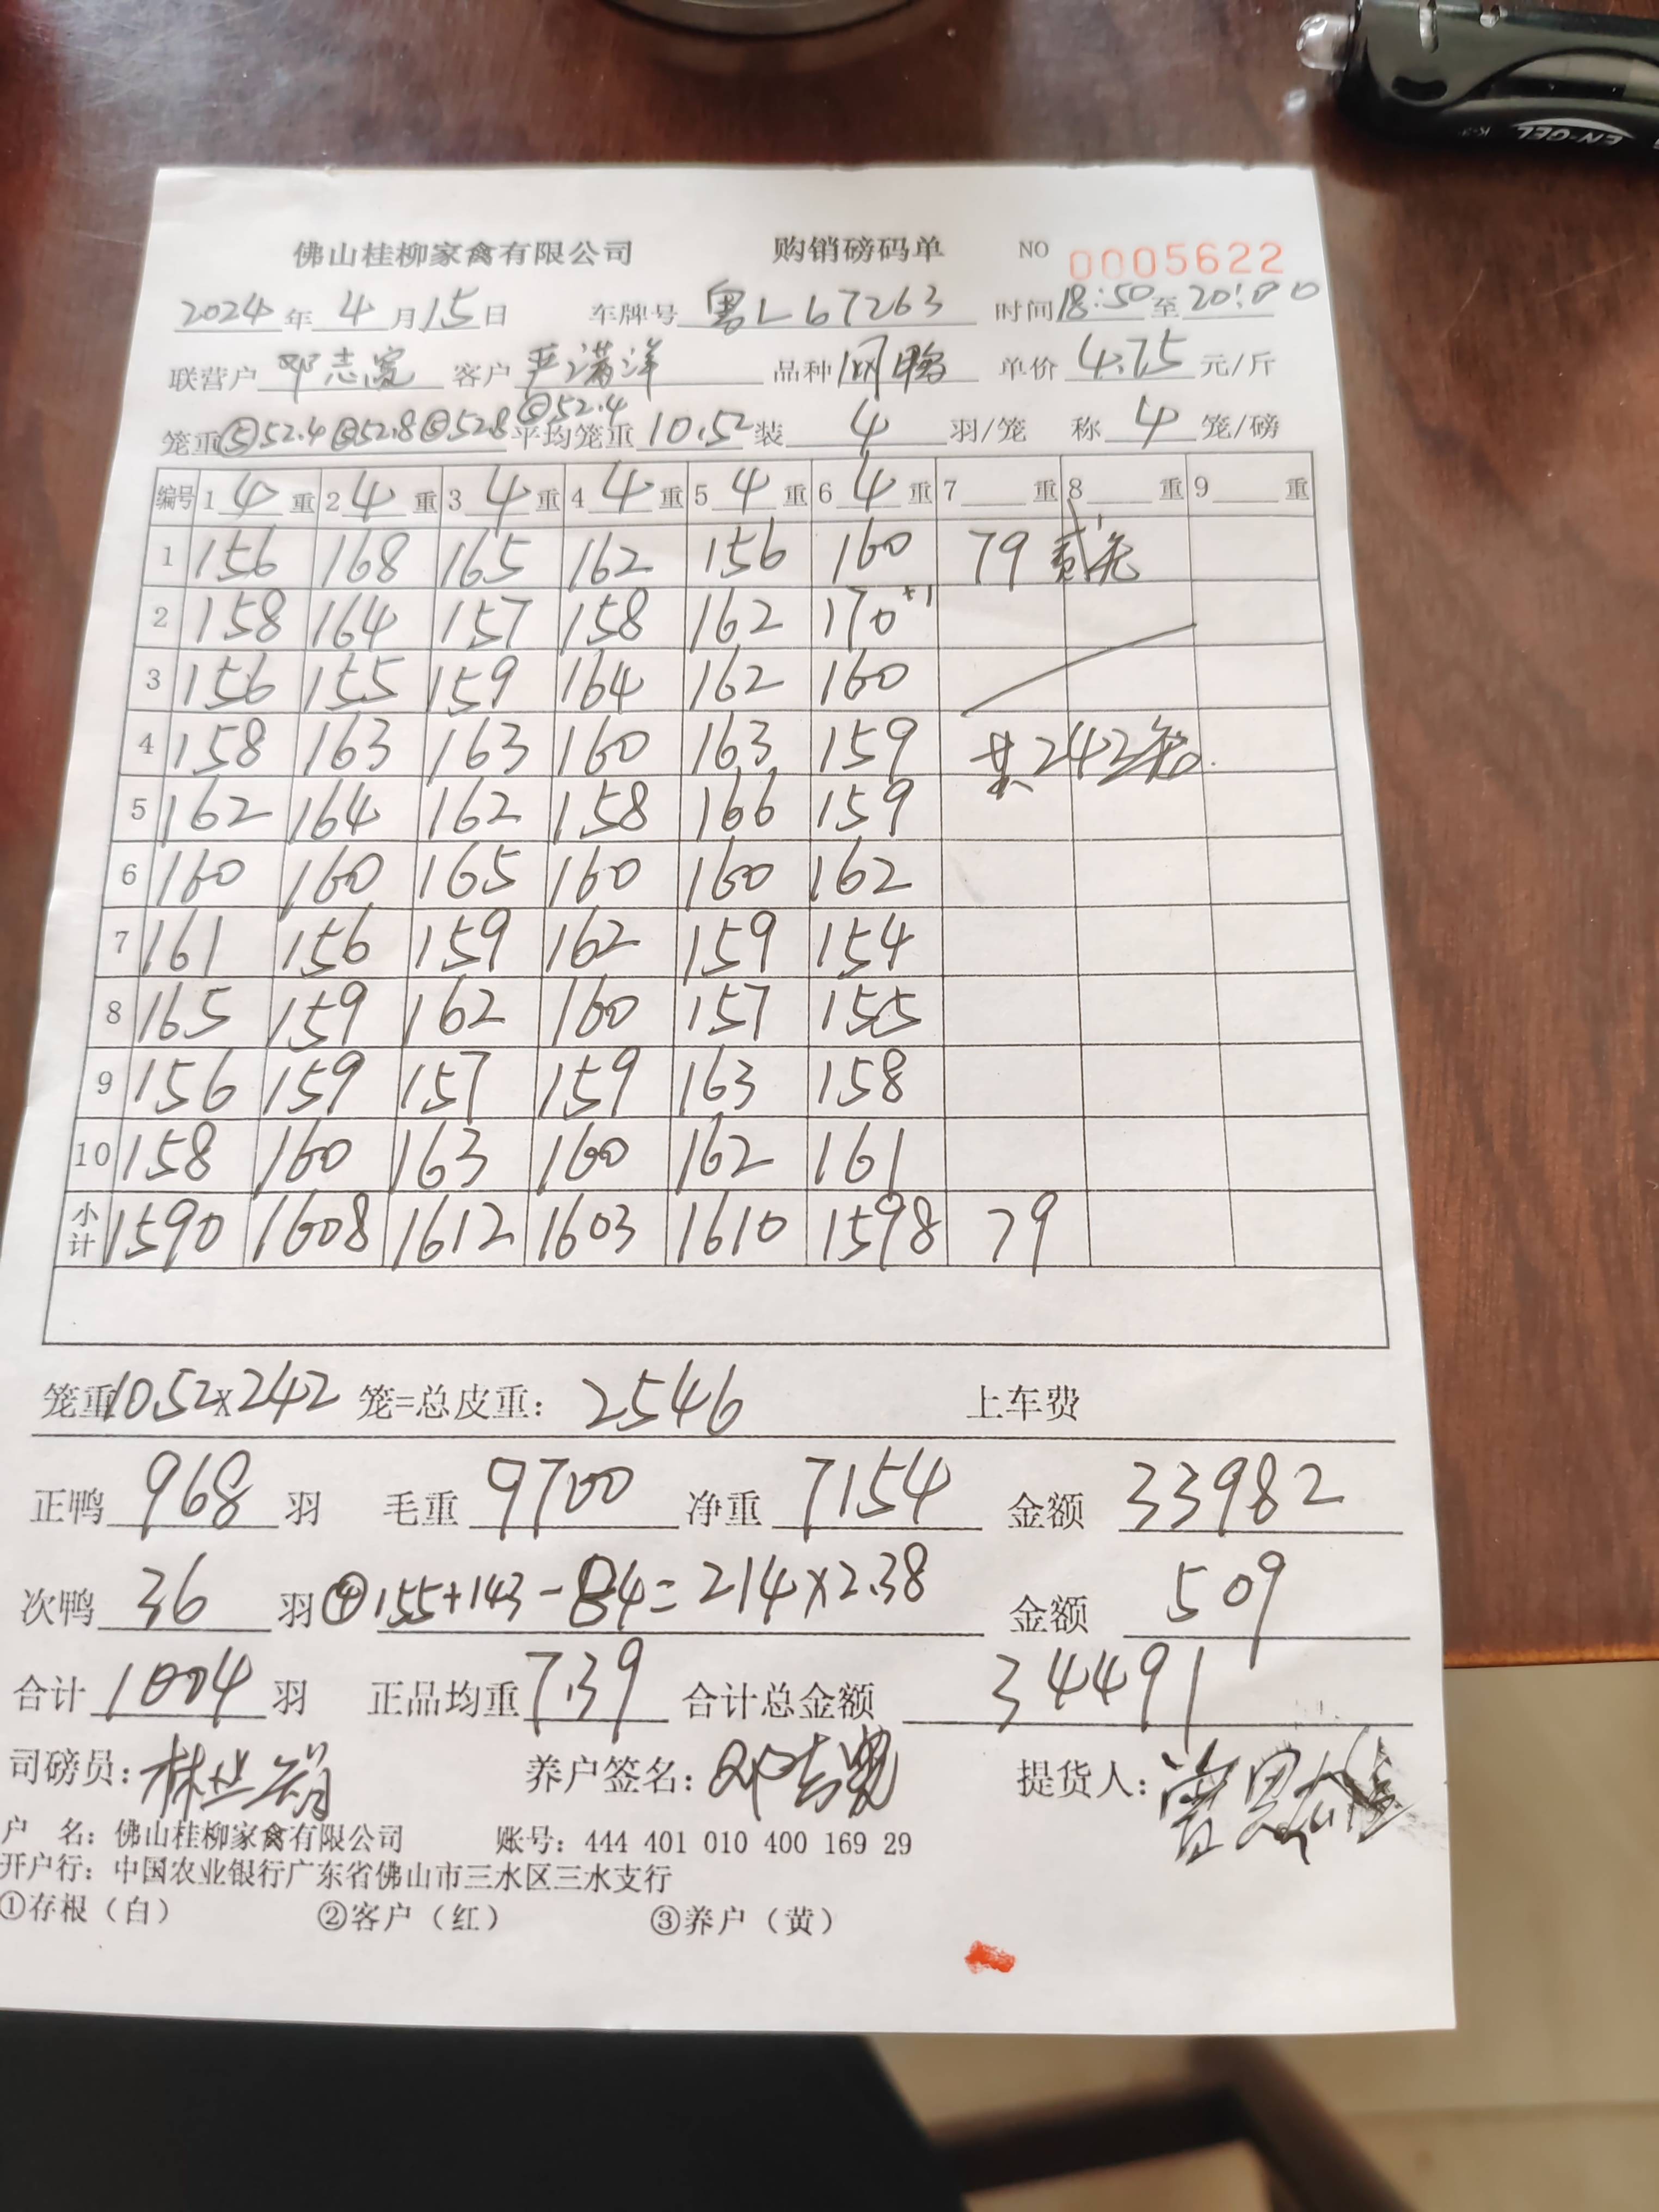 EN-GEL
K-3
佛山桂柳家禽有限公司 购销磅码单 NO 0005622
2024年4月15日 车牌号 粤L67263 时间18:50至20:00
联营户 邓志宽 客户 严满洋 品种 凤鸭 单价 4.75 元/斤
笼重⑤52.4⑤52.8⑤52.8⑤52.4平均笼重10.52装4羽/笼 称4笼/磅
编号 1 4重 2 4重 3 4重 4 4重 5 4重 6 4重 7 重 8 重 9 重
1 156 168 165 162 156 160 79 贰笼
2 158 164 157 158 162 170+1
3 156 155 159 164 162 160
4 158 163 163 160 163 159 共242笼
5 162 164 162 158 166 159
6 160 160 165 160 160 162
7 161 156 159 162 159 154
8 165 159 162 160 157 155
9 156 159 157 159 163 158
10 158 160 163 160 162 161
小计 1590 1608 1612 1603 1610 1598 79
笼重10.52x242 笼=总皮重：2546 上车费
正鸭968羽 毛重9700 净重7154 金额33982
次鸭36羽④155+143-84=214x2.38 金额509
合计1004羽 正品均重7.39 合计总金额34491
司磅员： 养户签名： 提货人：
户 名：佛山桂柳家禽有限公司 账号：444 401 010 400 169 29
开户行：中国农业银行广东省佛山市三水区三水支行
①存根（白） ②客户（红） ③养户（黄）